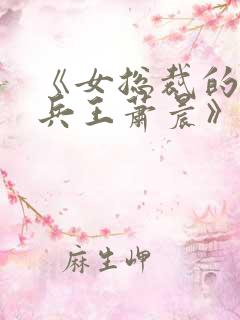 《女总裁的
兵王萧晨》
麻生岬